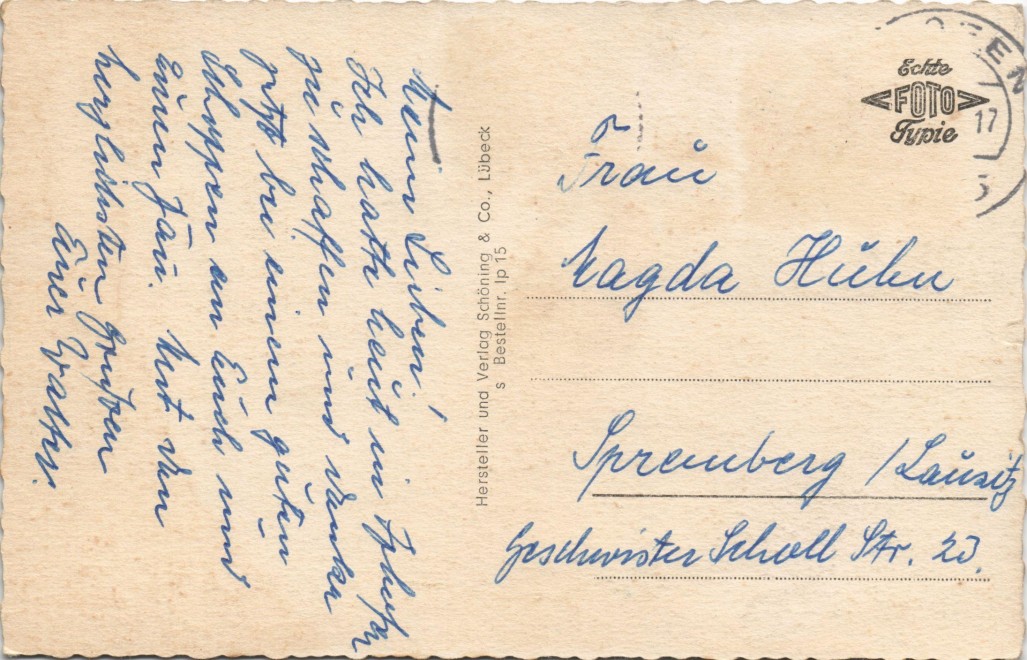 Mein Lieben!
Ich hatte heut in Iphofen
zu schaffen und denke
jetzt bei einem guten
Schoppen an Euch und
Eurer Frau. Mit den
herzlichsten Grüßen
Euer
Hersteller und Verlag Schöning & Co., Lübeck
s Bestellnr. Ip 15
Echte
FOTO
Typie
17
Frau
Magda Huhn
Spremberg / Lausitz
Geschwister Scholl Str. 23.